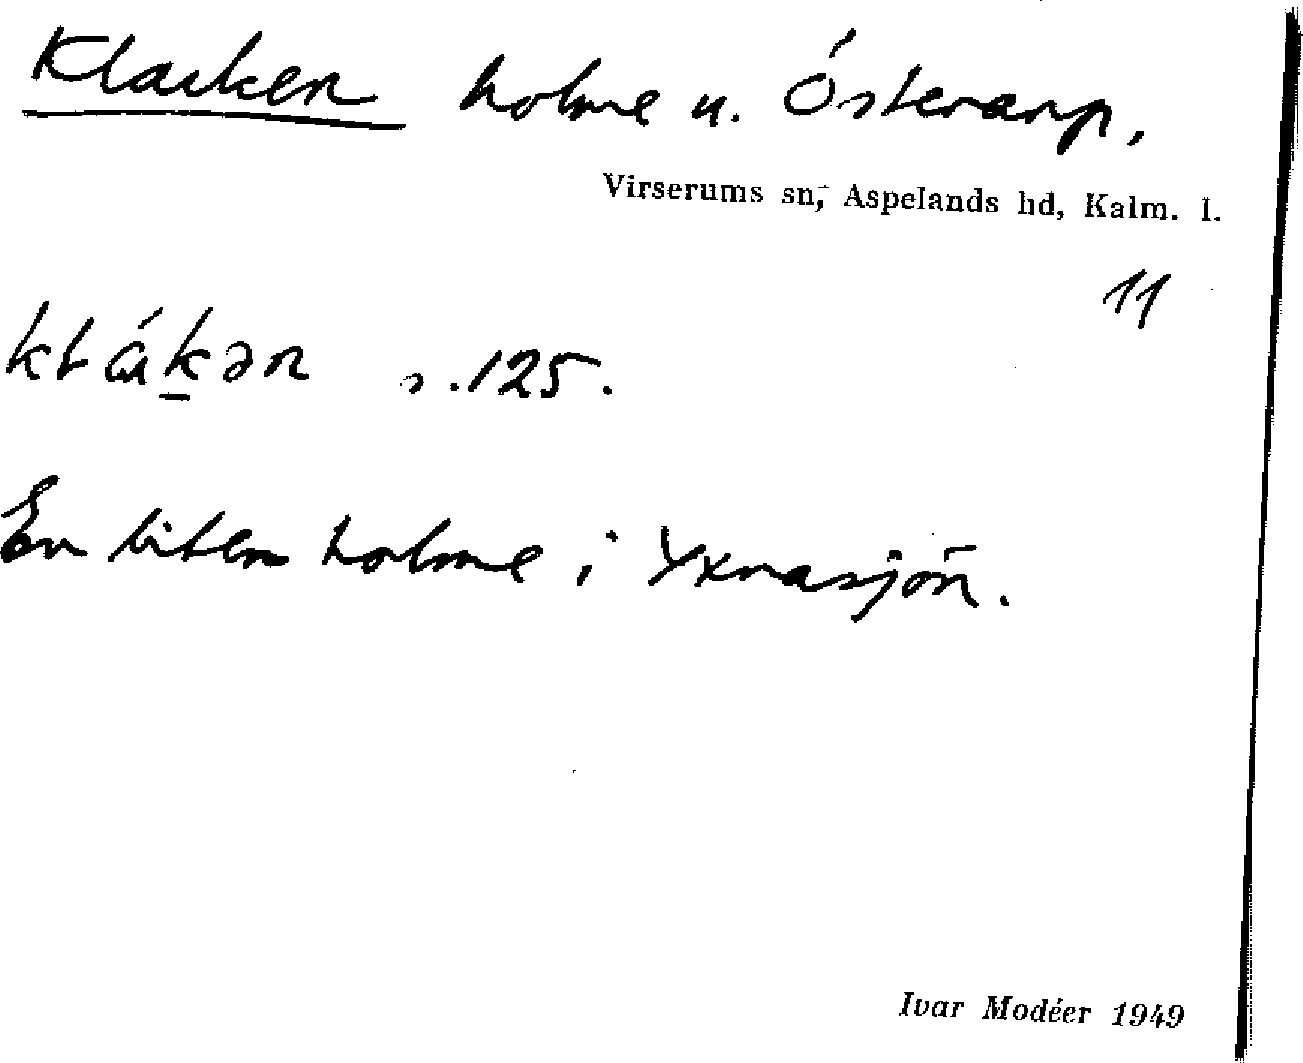 Klacken holme u. Österarp,
Virserums sn, Aspelands hd, Kalm. l.
11
s. 125.
En liten holme i Yxnasjön.
Ivar Modéer 1949